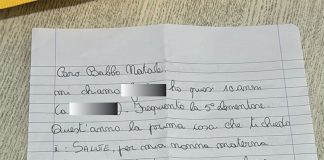 Caro Babbo Natale,
mi chiamo ho quasi 10 anni
(a ). Frequento la 5° elementare.
Quest'anno la prima cosa che ti chiedo
è: SALUTE, per mia nonna materna